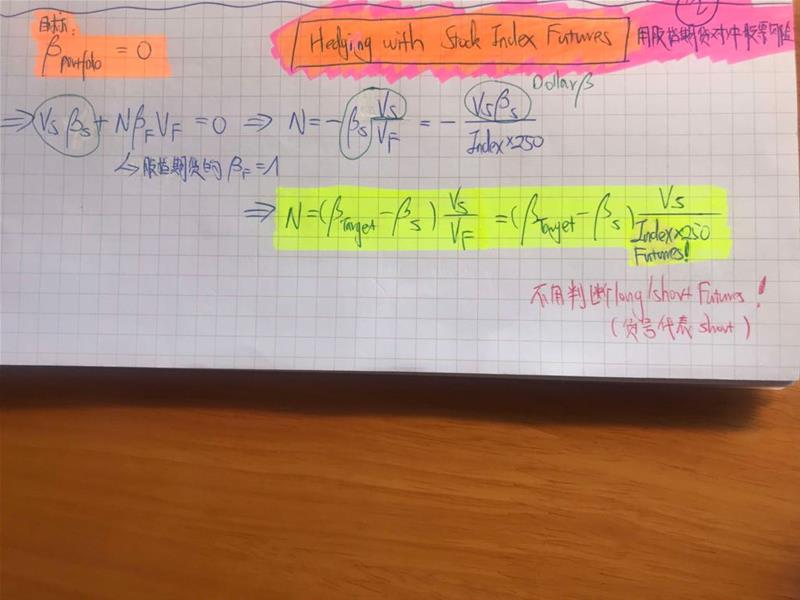 目标:
β portfolio = 0
Hedging with Stock Index Futures 用股指期货对冲股票风险
⇒ Vs βs + N βF VF = 0 ⇒ N = - βs Vs/VF = - Vs βs/Index×250 Dollar β
↳ 股指期货的 βF = 1
⇒ N = (βTarget - βs) Vs/VF = (βTarget - βs) Vs/Index×250
Futures!
不用判断 long/short Futures!
(负号代表 short)